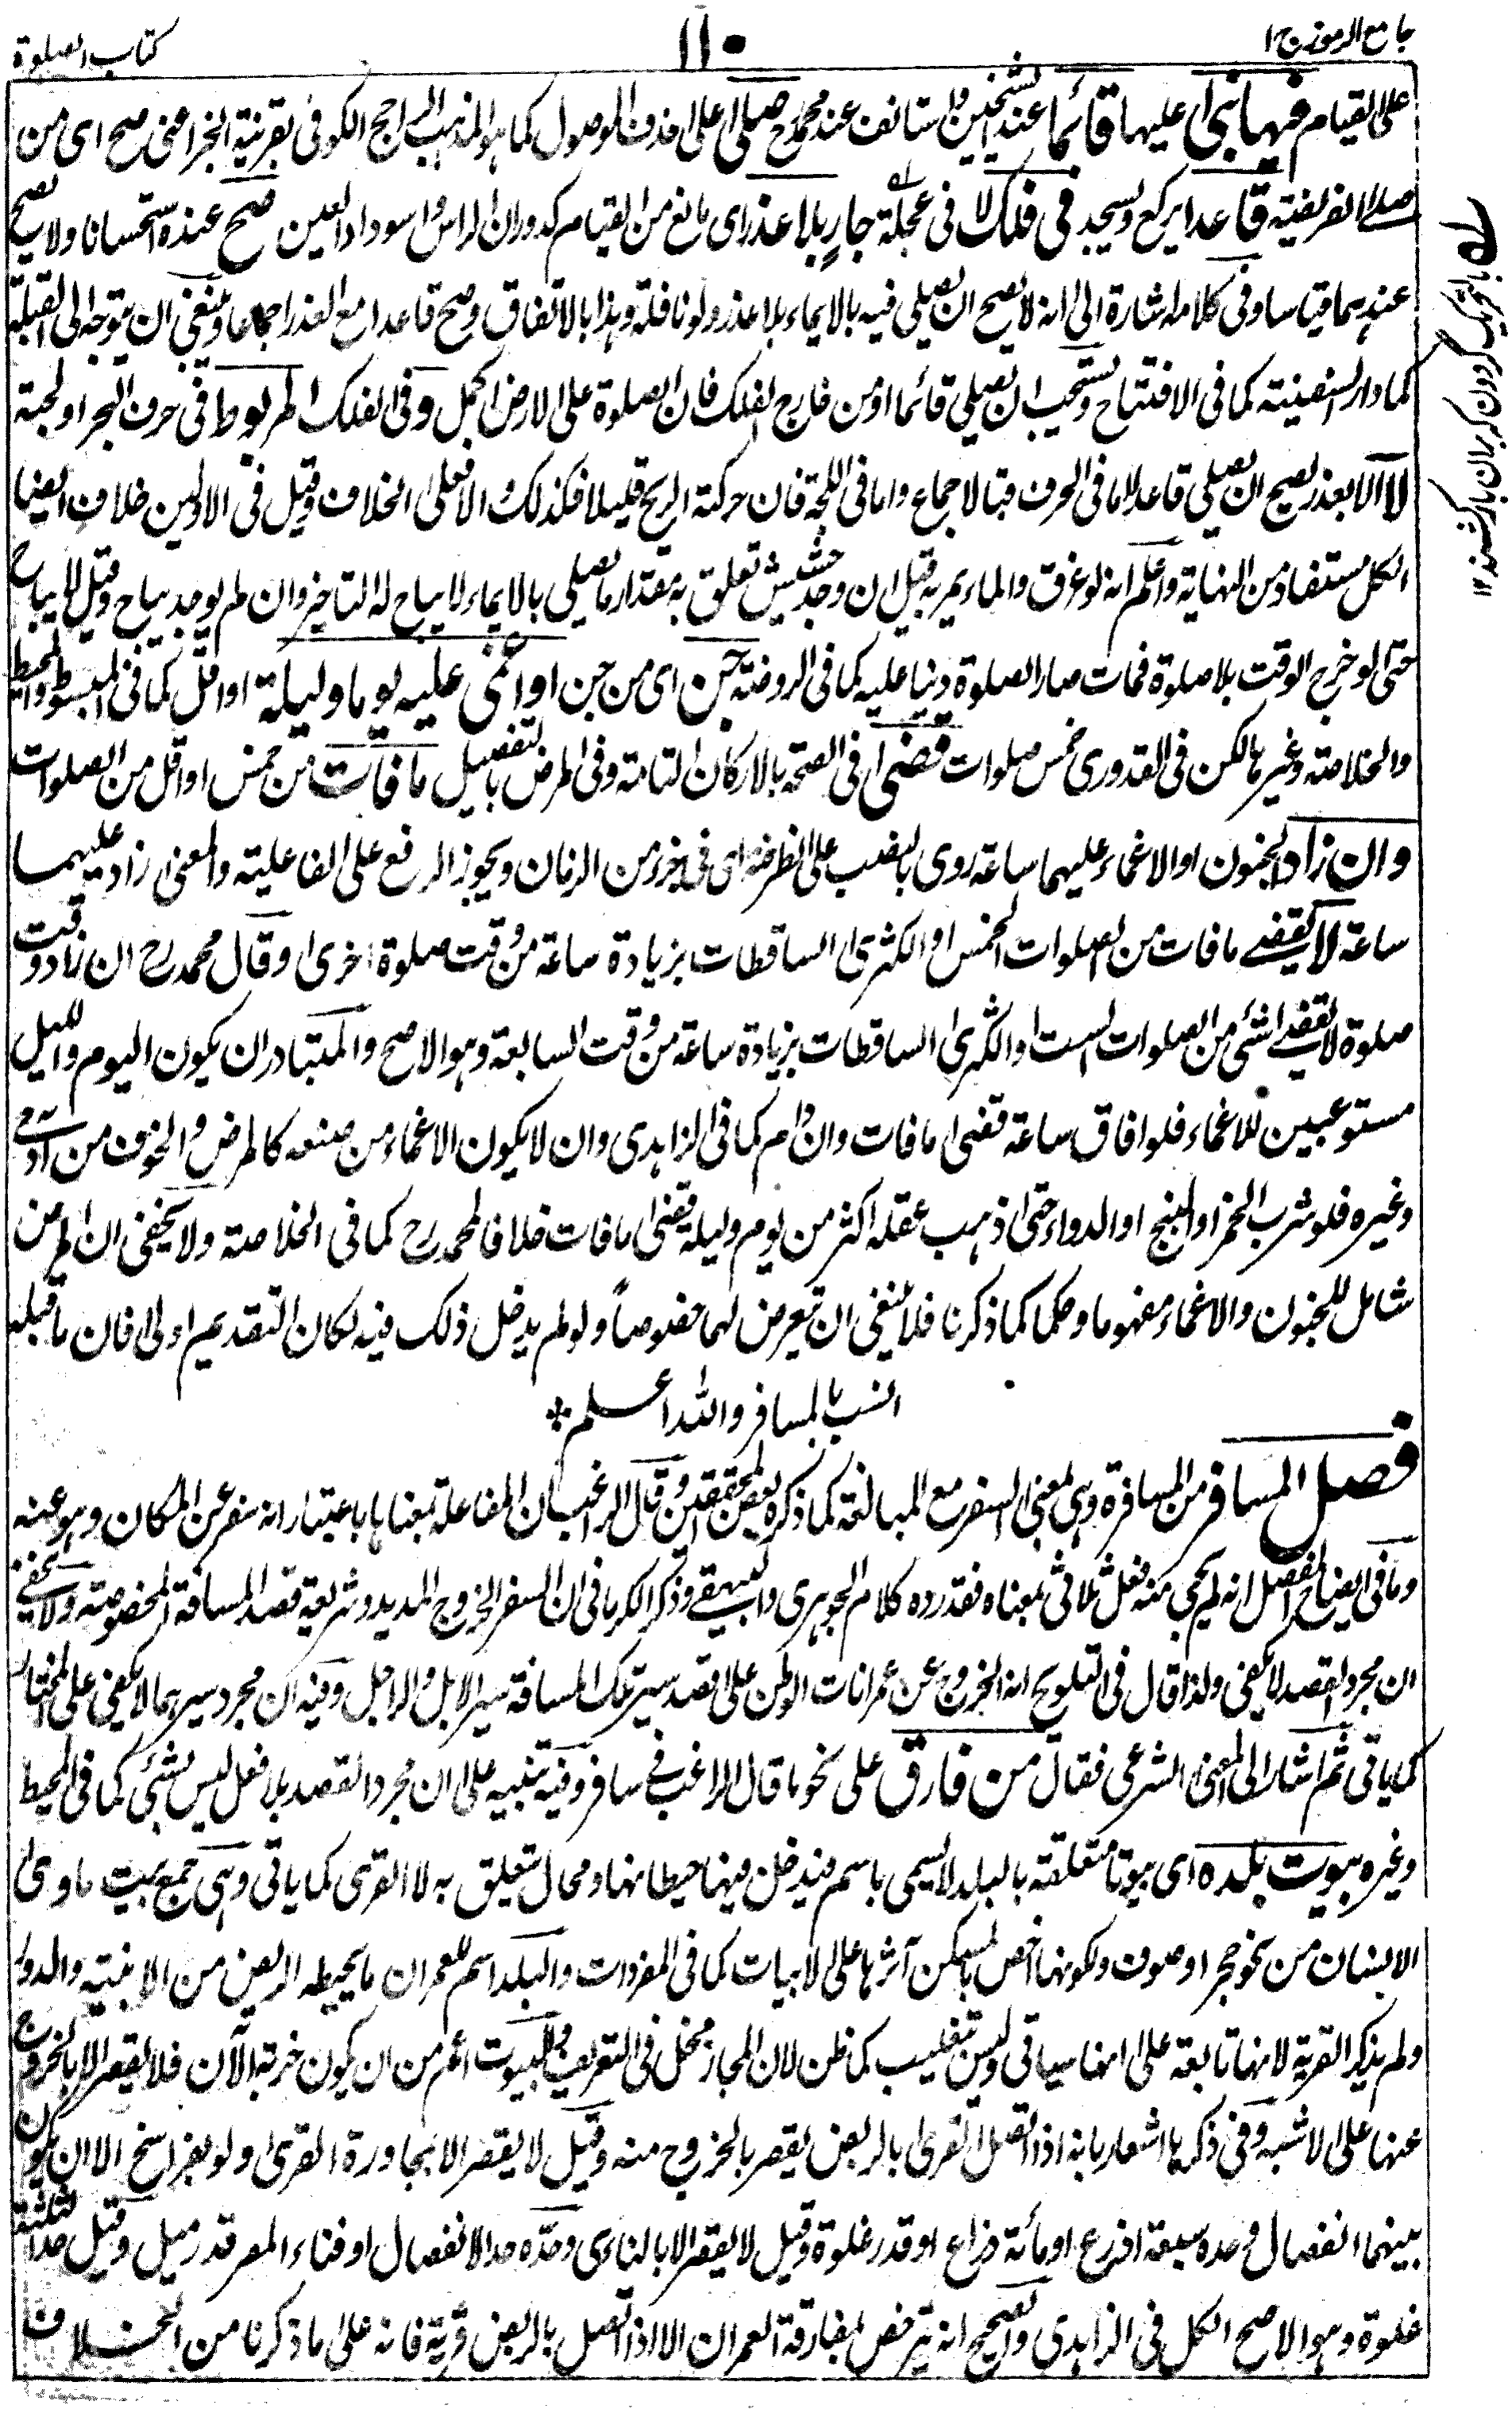 جامع الرموز ج ١
١١٠
كتاب الصلوة
على القيام فيها بنى اى عليها قائما عند الشيخين واستانف عند محمد رح صلى اى على حذف الموصول كما هو المذهب الراجح الكوفى بقرينة الخبر اعنى صح اى من
صلى الفريضة قاعدا يركع ويسجد فى فلك لا فى عجلة جار بلا عذر اى مانع من القيام كدوران الراس واسوداد العين صح عنده استحسانا ولا يصح
عندهما قياسا وفى كلامه اشارة الى انه لا يصح ان يصلى فيه بالايماء بلا عذر ولو نافلة وهذا بالاتفاق وصح قاعدا مع العذر اجماعا وينبغى ان يتوجه الى القبلة
كما دار السفينة كما فى الافتتاح ويستحب ان يصلى قائما او من خارج الفلك فان الصلوة على الارض اكمل وفى الفلك المربوط فى حرف البحر او لجته
لا الا بعذر يصح ان يصلى قاعدا اما فى الحرف فبالاجماع واما فى اللجة فان حركته الريح قليلا فكذلك والا فعلى الخلاف وقيل فى الاولين خلاف ايضا
الكل مستفاد من النهاية واعلم انه لو غرق والماء يمر به قيل ان وجد حشيش تعلق به مقدار ما يصلى بالايماء لا يباح له التاخير وان لم يوجد يباح وقيل لا يباح
حتى لو خرج الوقت بلا صلوة فمات صار الصلوة دينا عليه كما فى الروضة جن اى من جن او اغمى عليه يوما وليلة او اقل كما فى المبسوط والمحيط
والخلاصة وغيرها لكن فى القدورى خمس صلوات قضى اى فى الصحة بالاركان التامة وفى المرض بالتفصيل ما فات من خمس او اقل من الصلوات
وان زاد الجنون او الاغماء عليهما ساعة روى بالنصب على الظرفية اى فى جزء من الزمان ويجوز الرفع على الفاعلية والمعنى زاد عليهما
ساعة لا يقضى ما فات من الصلوات الخمس او اكثر اى الساقطات بزيادة ساعة من وقت صلوة اخرى وقال محمد رح ان زاد وقت
صلوة لا يقضى شئ من الصلوات الست او اكثر اى الساقطات بزيادة ساعة من وقت السابعة وهو الاصح والمتبادر ان يكون اليوم والليل
مستوعبين للاغماء فلو افاق ساعة قضى ما فات وان دام كما فى الزاهدى وان لا يكون الاغماء من صنعه كالمرض والخوف من آدمى
وغيره فلو شرب الخمر او البنج او الدواء حتى ذهب عقله اكثر من يوم وليلة قضى ما فات خلافا لمحمد رح كما فى الخلاصة ولا يخفى ان المرض
شامل للجنون والاغماء مفهوما وحكما كما ذكرنا فلا ينبغى ان يتعرض لهما خصوصاً ولو لم يدخل ذلك فيه لكان التقديم اولى فان ما قبله
انسب بالمسافر والله اعلم *
فصل المسافر من المسافرة وهى بمعنى السفر مع المبالغة كما ذكره بعض المحققين وقال الراغب ان المفاعلة بمعناها باعتبار انه سفر عن المكان وهو عنه
وما فى ايضاح المفصل انه لم يجئ منه فعل ثلاثى بمعناه فقد رده كلام الجوهرى والبيهقى وذكر الكرمانى ان السفر الخروج المديد وشريعة قصد المسافة المخصوصة ولا يخفى
ان مجرد القصد لا يكفى ولذا قال فى التلويح انه الخروج عن عمرانات الوطن على قصد سير تلك المسافة سير الابل والراجل وفيه ان مجرد سيرهما لا يكفى على المختار
كما ياتى ثم اشار الى المعنى الشرعى فقال من فارق على نحو ما قال الراغب فى سافر وفيه تنبيه على ان مجرد القصد بلا فعل ليس بشئ كما فى المحيط
وغيره بيوت بلده اى بيوتا متعلقة بالبلد لا يسمى باسم فيدخل فيها حيطانها ومحال تتعلق به لا القرى كما ياتى وهى جمع بيت ماوى
الانسان من نحو حجر او صوف ولكونها اخص بالمسكن آثرها على الابيات كما فى المفردات والبلد اسم للعمران ما يحيطه الربض من الابنية والدور
ولم يذكر القرية لانها تابعة على انها سياتى وليس تغليب كما ظن لان المجاز مخل فى التعريف والبيوت اعم من ان يكون خربة الآن فلا يقصر الا بالخروج
عنها على الاشبه وفى ذكرها اشعار بانه اذا اتصل القرى بالربض يقصر بالخروج منه وقيل لا يقصر الا بمجاورة القرى ولو بفراسخ الا ان يكون
بينهما انفصال وحده سبعة اذرع او مائة ذراع او قدر غلوة وقيل لا يقصر الا بالنائى وحده حد الانفصال او فناء المصر قدر ميل وقيل
غلوة وهو الاصح الكل فى الزاهدى والصحيح انه يترخص بمفارقة العمران الا اذا اتصل بالربض قرية فانه على ما ذكرنا من الخلاف
له بالتحريك گردون كه بران بار كشند ١٢